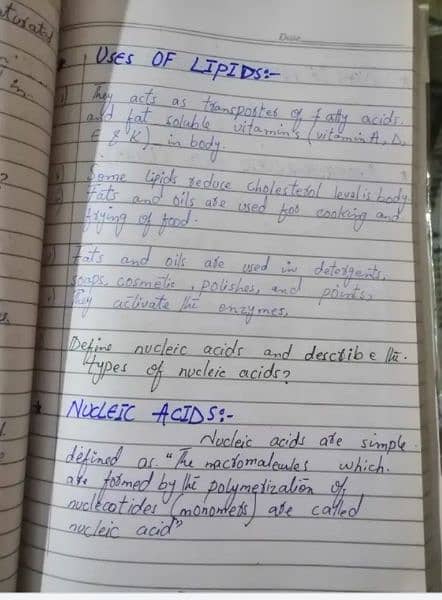 Date
USES OF LIPIDS:-
They acts as transporter of fatty acids.
and fat soluble vitamin's (vitamin A, D,
E & K) in body.
Some lipids reduce cholesterol level is body
Fats and oils are used for cooking and
frying of food.
Fats and oils are used in detergents,
soaps, cosmetic, polishes, and points,
They activate the enzymes.
Define nucleic acids and describe the.
types of nucleic acids?
NUCLEIC ACIDS:-
Nucleic acids are simple
defined as. "The macromaleules which.
are formed by the polymerization of,
nuclecotides (monomers) are called
nucleic acid"